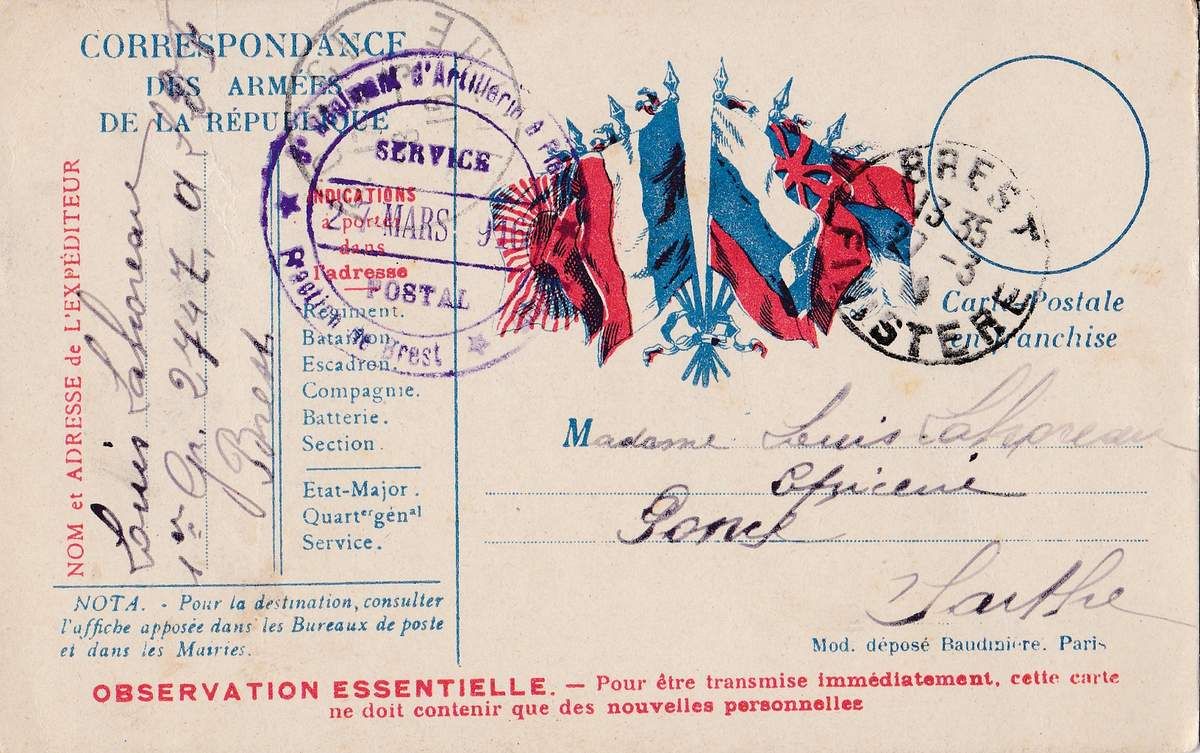 CORRESPONDANCE
DES ARMÉES
DE LA RÉPUBLIQUE
NOM et ADRESSE de L'EXPÉDITEUR
Louis Lahoreau
1er Gr. 2747
Brest
Régiment d'Artillerie à
SERVICE
MARS
POSTAL
Fraction de Brest
INDICATIONS
à porter
dans
l'adresse
Régiment.
Bataillon.
Escadron.
Compagnie.
Batterie.
Section.
Etat-Major.
Quartergénal
Service.
NOTA. - Pour la destination, consulter
l'affiche apposée dans les Bureaux de poste
et dans les Mairies.
BREST
13 35
27 -3
FINISTERE
Carte Postale
en franchise
Madame Louis Lahoreau
Epicerie
Sarthe
Mod. déposé Baudinière. Paris
OBSERVATION ESSENTIELLE. — Pour être transmise immédiatement, cette carte
ne doit contenir que des nouvelles personnelles